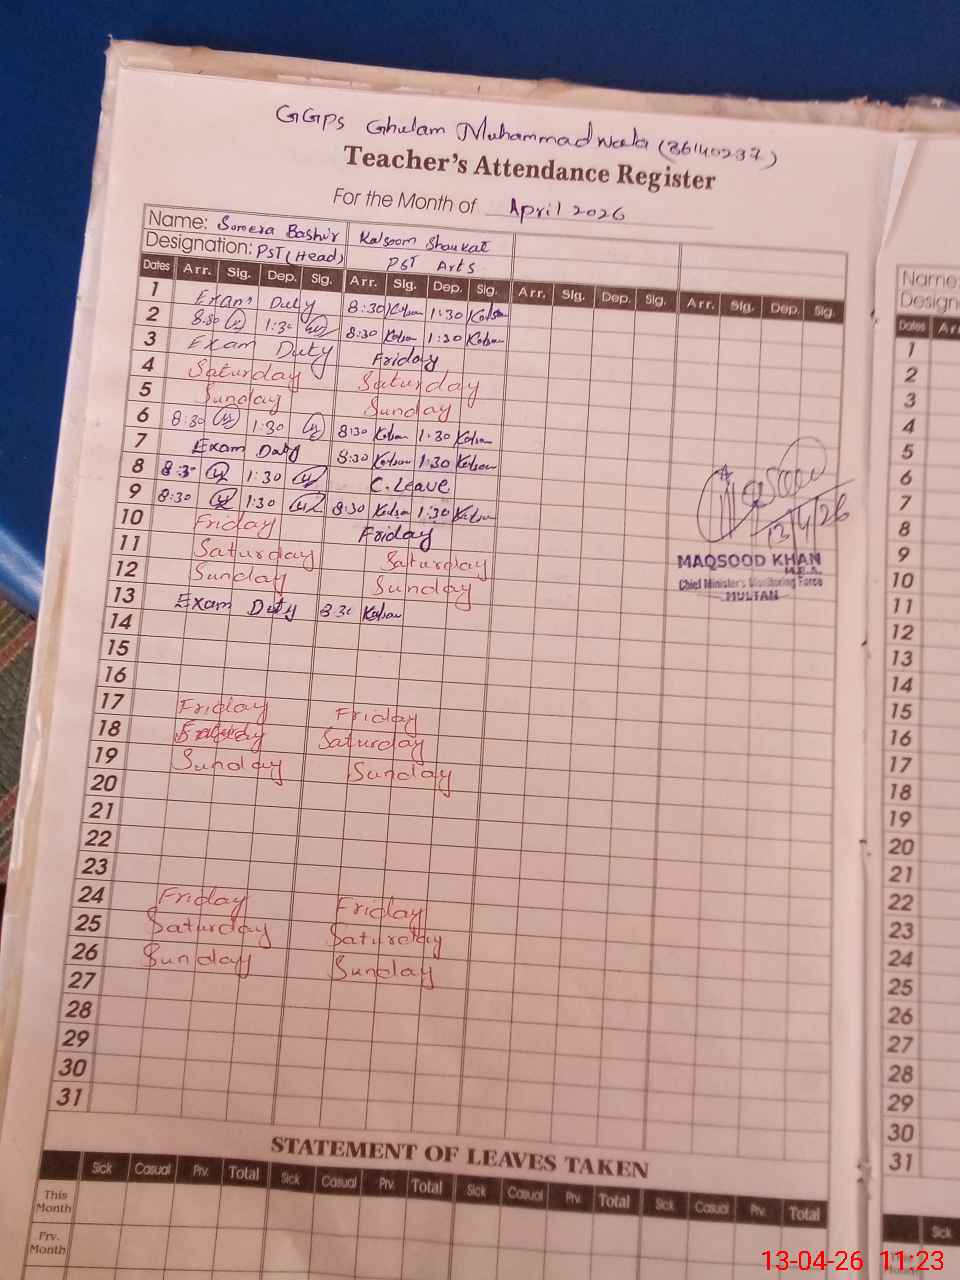 GGPS Ghulam Muhammad Wala (36140237)
Teacher's Attendance Register
For the Month of April 2026
Name: Somera Bashir Kalsoom Shaukat
Designation: PST (Head) PST Arts
Dates Arr. Sig. Dep. Sig. Arr. Sig. Dep. Sig. Arr. Sig. Dep. Sig. Arr. Sig. Dep. Sig.
1 Exam Duty 8:30 Kalsm 1:30 Kalsm
2 8:30 1:30 8:30 Kalsm 1:30 Kalsm
3 Exam Duty Friday
4 Saturday Saturday
5 Sunday Sunday
6 8:30 1:30 8:30 Kalsm 1:30 Kalsm
7 Exam Duty 8:30 Kalsm 1:30 Kalsm
8 8:30 1:30 C.Leave
9 8:30 1:30 8:30 Kalsm 1:30 Kalsm
10 Friday Friday
11 Saturday Saturday
12 Sunday Sunday
13 Exam Duty 8:30 Kalsm
14
15
16
17 Friday Friday
18 Saturday
19 Sunday Sunday
20
21
22
23
24 Friday Friday
25 Saturday Saturday
26 Sunday Sunday
27
28
29
30
31
13/4/26
MAQSOOD KHAN
M.E.A.
Chief Minister's Monitoring Force
MULTAN
STATEMENT OF LEAVES TAKEN
Sick Casual Prv. Total Sick Casual Prv. Total Sick Casual Prv. Total Sick Casual Prv. Total
This Month
Prv. Month
Name:
Dates
1
2
3
4
5
6
7
8
9
10
11
12
13
14
15
16
17
18
19
20
21
22
23
24
25
26
27
28
29
30
31
Sick
13-04-26 11:23